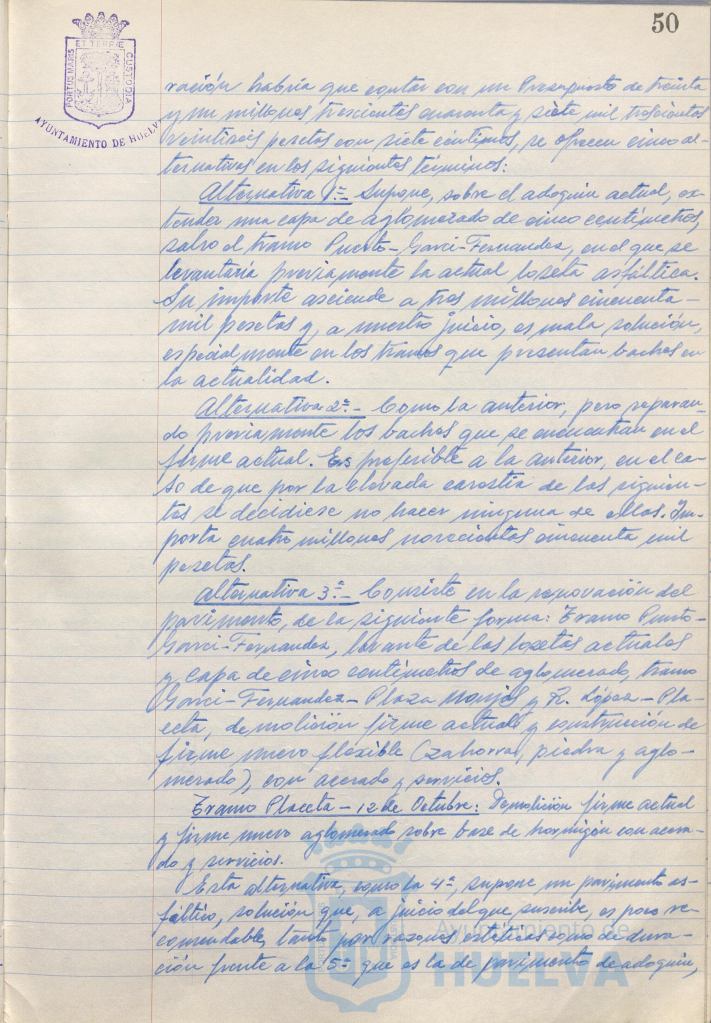 50
PORTUS MARIS ET TERRAE CUSTODIA
AYUNTAMIENTO DE HUELVA
ración habría que contar con un Presupuesto de treinta
y un millones trescientas cuarenta y siete mil trescientas
veintiseis pesetas con siete céntimos, se ofrecen cinco al-
ternativas en los siguientes términos:
Alternativa 1ª.- Supone, sobre el adoquín actual, ex-
tender una capa de aglomerado de cinco centímetros,
salvo el tramo Puerto-Garci-Fernandez, en el que se
levantaría previamente la actual loseta asfáltica.
Su importe asciende a tres millones cincuenta
mil pesetas y, a nuestro juicio, es mala solución,
especialmente en los tramos que presentan baches en
la actualidad.
Alternativa 2ª.- Como la anterior, pero reparan-
do previamente los baches que se encuentran en el
firme actual. Es preferible a la anterior, en el ca-
so de que por la elevada carestía de las siguien-
tes se decidiese no hacer ninguna de ellas. Im-
porta cuatro millones novecientas cincuenta mil
pesetas.
Alternativa 3ª.- Consiste en la renovación del
pavimento, de la siguiente forma: Tramo Puerto-
Garci-Fernandez, levante de las losetas actuales
y capa de cinco centímetros de aglomerado, tramo
Garci-Fernandez-Plaza Monjas y R. López-Pla-
ceta, demolición firme actual y construcción de
firme nuevo flexible (zahorra, piedra y aglo-
merado), con acerado y servicios.
Tramo Placeta-12 de Octubre: Demolición firme actual
y firme nuevo aglomerado sobre base de hormigón con acera-
do y servicios.
Esta alternativa, como la 4ª, supone un pavimento as-
fáltico, solución que, a juicio del que suscribe, es poco re-
comendable, tanto por razones estéticas como de dura-
ción frente a la 5ª que es la de pavimento de adoquín,
Ayuntamiento de
HUELVA